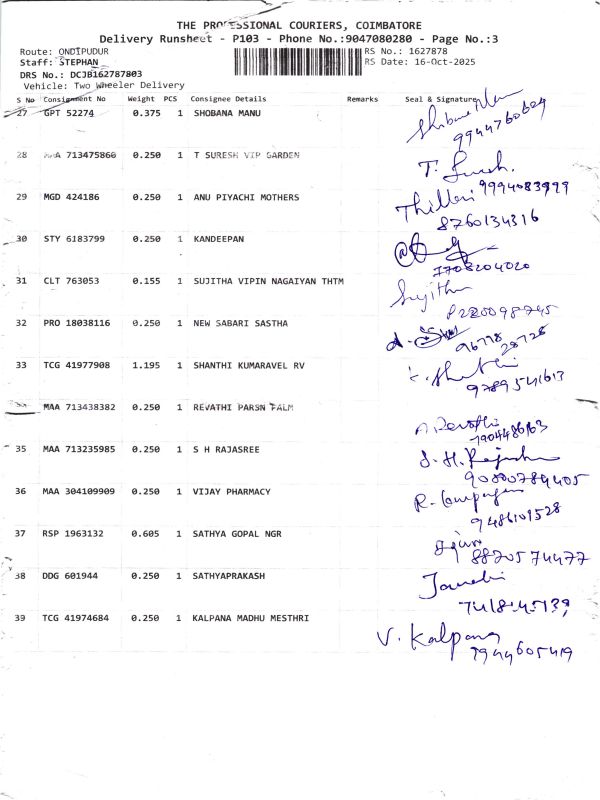 THE PROFESSIONAL COURIERS, COIMBATORE
Delivery Runsheet - P103 - Phone No.:9047080280 - Page No.:3
Route: ONDIPUDUR
RS No.: 1627878
Staff: STEPHAN
RS Date: 16-Oct-2025
DRS No.: DCJB162787803
Vehicle: Two Wheeler Delivery
S No Consignment No Weight PCS Consignee Details Remarks Seal & Signature
27 GPT 52274 0.375 1 SHOBANA MANU
9944760629
28 MAA 713475860 0.250 1 T SURESH VIP GARDEN T. Suresh
9994083999
29 MGD 424186 0.250 1 ANU PIYACHI MOTHERS
8760134316
30 STY 6183799 0.250 1 KANDEEPAN
7708204020
31 CLT 763053 0.155 1 SUJITHA VIPIN NAGAIYAN THTM Sujitha
8220098745
32 PRO 18038116 0.250 1 NEW SABARI SASTHA
33 TCG 41977908 1.195 1 SHANTHI KUMARAVEL RV
9789541613
MAA 713438382 0.250 1 REVATHI PARSN PALM Revathi
7904486163
35 MAA 713235985 0.250 1 S H RAJASREE S. H. Rajashree
36 MAA 304109909 0.250 1 VIJAY PHARMACY
9486109528
37 RSP 1963132 0.605 1 SATHYA GOPAL NGR
8870574477
38 DDG 601944 0.250 1 SATHYAPRAKASH
7418145139
39 TCG 41974684 0.250 1 KALPANA MADHU MESTHRI V. Kalpana
9944605419